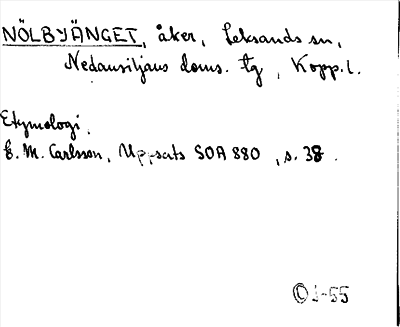 NÖLBYÄNGET, åker, Leksands sn,
Nedansiljans doms. tg, Kopp. l.
Etymologi.
E. M. Carlsson, Uppsats SOA 880, s. 38.